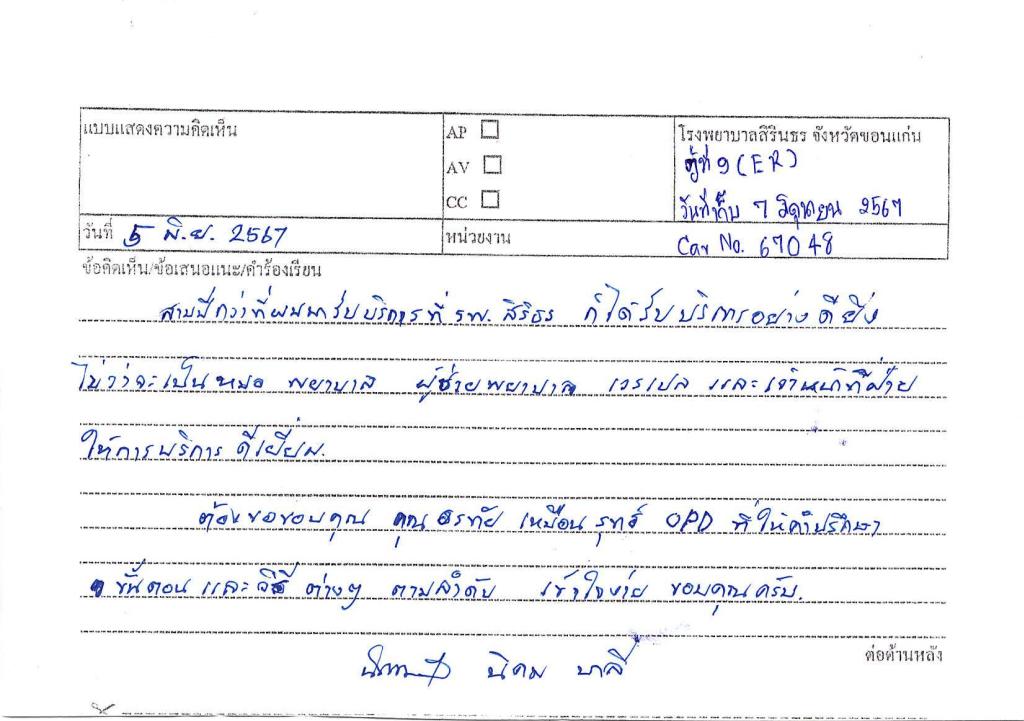 แบบแสดงความคิดเห็น
AP
AV
CC
โรงพยาบาลสิรินธร จังหวัดขอนแก่น
ตู้ที่ 9 (ER)
วันที่เก็บ 7 มิถุนายน 2567
วันที่ 5 มิ.ย. 2567
หน่วยงาน
Car No. 67048
ข้อคิดเห็น/ข้อเสนอแนะ/คำร้องเรียน
สามปีกว่าที่ผมมารับบริการที่ รพ. สิริธร ก็ได้รับบริการอย่างดียิ่ง
ไม่ว่าจะเป็นหมอ พยาบาล ผู้ช่วยพยาบาล เวรเปล และเจ้าหน้าที่ฝ่าย
ให้การบริการดีเยี่ยม.
ต้องขอขอบคุณ คุณ อรทัย เหมือน OPD ที่ให้คำปรึกษา
ขั้นตอนและวิธี ต่างๆ ตามลำดับ เข้าใจง่าย ขอบคุณครับ.
นิคม บาลี
ต่อด้านหลัง